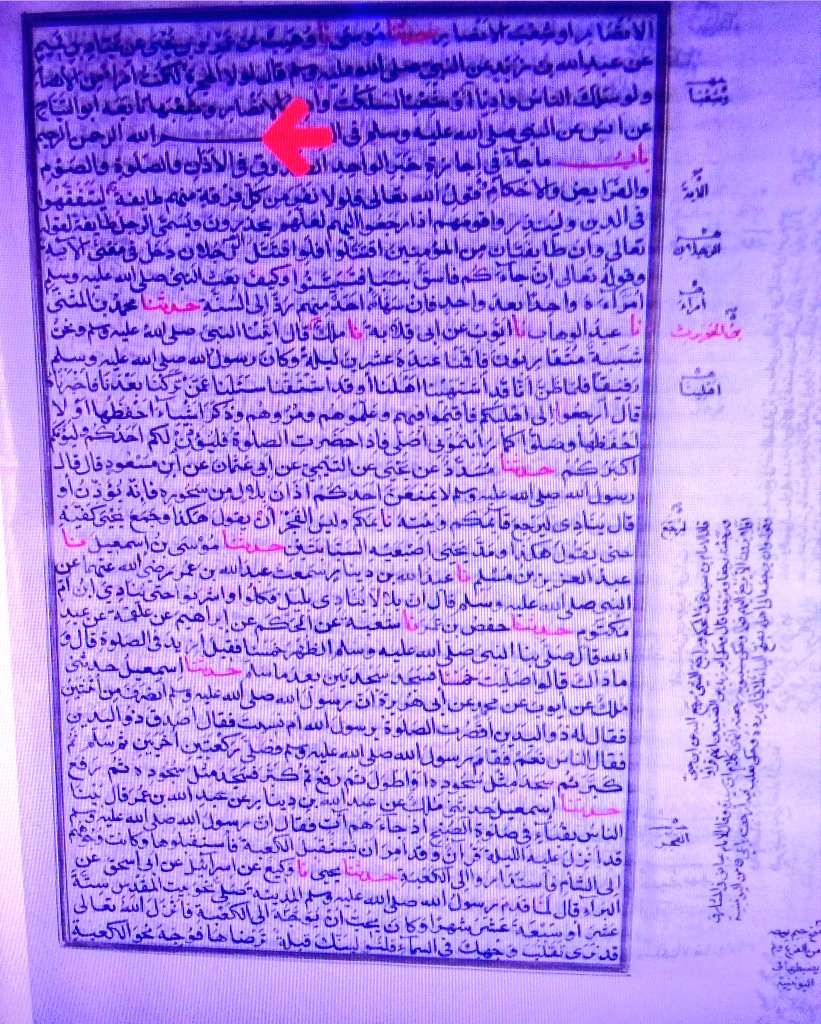 الانصار او شعب الانصار حدثنا موسى نا وهيب عن عمرو بن يحيى عن عباد بن تميم
عن عبد الله بن زيد عن النبي صلى الله عليه وسلم قال لولا الهجرة لكنت امرأ من الانصار
ولو سلك الناس واديا او شعبا لسلكت وادي الانصار وشعبها تابعه ابو التياح
عن انس عن النبي صلى الله عليه وسلم في الله الرحمن الرحيم
باب ما جاء في اجازة خبر الواحد الصدوق في الاذان والصلوة والصوم
والفرايض والاحكام قول الله تعالى فلولا نفر من كل فرقة منهم طايفة ليتفقهوا
في الدين ولينذروا قومهم اذا رجعوا اليهم لعلهم يحذرون ويسمى الرجل طايفة لقوله
تعالى وان طايفتان من المؤمنين اقتتلوا فلو اقتتل رجلان دخل في معنى الاية
وقوله تعالى ان جاءكم فاسق بنبا فتبينوا وكيف بعث النبي صلى الله عليه وسلم
امراءه واحدا بعد واحد فان سها احد منهم رد الى السنة حدثنا محمد بن المثنى
نا عبد الوهاب نا ايوب عن ابي قلابة نا ملك قال اتينا النبي صلى الله عليه وسلم ونحن
شببة متقاربون فاقمنا عنده عشرين ليلة وكان رسول الله صلى الله عليه وسلم
رفيقا فلما ظن انا قد اشتهينا اهلنا او قد اشتقنا سئلنا عمن تركنا بعدنا فاخبرناه
قال ارجعوا الى اهليكم فاقيموا فيهم وعلموهم ومروهم وذكر اشياء احفظها او لا
احفظها وصلوا كما رايتموني اصلي فاذا حضرت الصلوة فليؤذن لكم احدكم وليؤمكم
اكبركم حدثنا مسدد عن يحيى عن التيمي عن ابي عثمان عن ابن مسعود قال قال
رسول الله صلى الله عليه وسلم لا يمنعن احدكم اذان بلال من سحوره فانه يؤذن او
قال ينادي ليرجع قائمكم وينبه نائمكم وليس الفجر ان يقول هكذا وجمع يحيى كفيه
حتى يقول هكذا ومد يحيى اصبعيه السبابتين حدثنا موسى بن اسمعيل نا
عبد العزيز بن مسلم نا عبد الله بن دينار سمعت عبد الله بن عمر رضي الله عنهما عن
النبي صلى الله عليه وسلم قال ان بلالا ينادي بليل فكلوا واشربوا حتى ينادي ابن ام
مكتوم حدثنا حفص بن عمر نا شعبة عن الحكم عن ابراهيم عن علقمة عن عبد
الله قال صلى بنا النبي صلى الله عليه وسلم الظهر خمسا فقيل ازيد في الصلوة قال و
ما ذاك قالوا صليت خمسا فسجد سجدتين بعد ما سلم حدثنا اسمعيل حدثني
ملك عن ايوب عن محمد عن ابي هريرة ان رسول الله صلى الله عليه وسلم انصرف من اثنتين
فقال له ذو اليدين اقصرت الصلوة يرسول الله ام نسيت فقال اصدق ذو اليدين
فقال الناس نعم فقام رسول الله صلى الله عليه وسلم فصلى ركعتين اخريين ثم سلم ثم
كبر ثم سجد مثل سجوده او اطول ثم رفع ثم كبر فسجد مثل سجوده ثم رفع
حدثنا اسمعيل حدثني ملك عن عبد الله بن دينار عن عبد الله بن عمر قال بينا
الناس بقباء في صلوة الصبح اذ جاءهم آت فقال ان رسول الله صلى الله عليه وسلم
قد انزل عليه الليلة قران وقد امر ان يستقبل الكعبة فاستقبلوها وكانت وجوههم
الى الشام فاستداروا الى الكعبة حدثنا يحيى نا وكيع عن اسرائيل عن ابي اسحق عن
البراء قال لما قدم رسول الله صلى الله عليه وسلم المدينة صلى نحو بيت المقدس ستة
عشر او سبعة عشر شهرا وكان يحب ان يوجه الى الكعبة فانزل الله تعالى
قد نرى تقلب وجهك في السماء فلنولينك قبلة ترضاها فوجه نحو الكعبة
وشعبا
الآية
الرجلان
امراءه
بن الحويرث
اهلينا